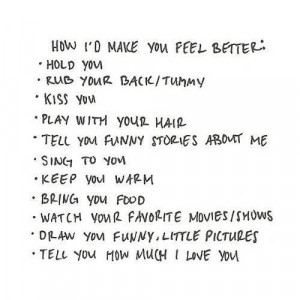 HOW I'D MAKE YOU FEEL BETTER:
• HOLD YOU
• RUB YOUR BACK/TUMMY
• KISS YOU
• PLAY WITH YOUR HAIR
• TELL YOU FUNNY STORIES ABOUT ME
• SING TO YOU
• KEEP YOU WARM
• BRING YOU FOOD
• WATCH YOUR FAVORITE MOVIES/SHOWS
• DRAW YOU FUNNY, LITTLE PICTURES
• TELL YOU HOW MUCH I LOVE YOU